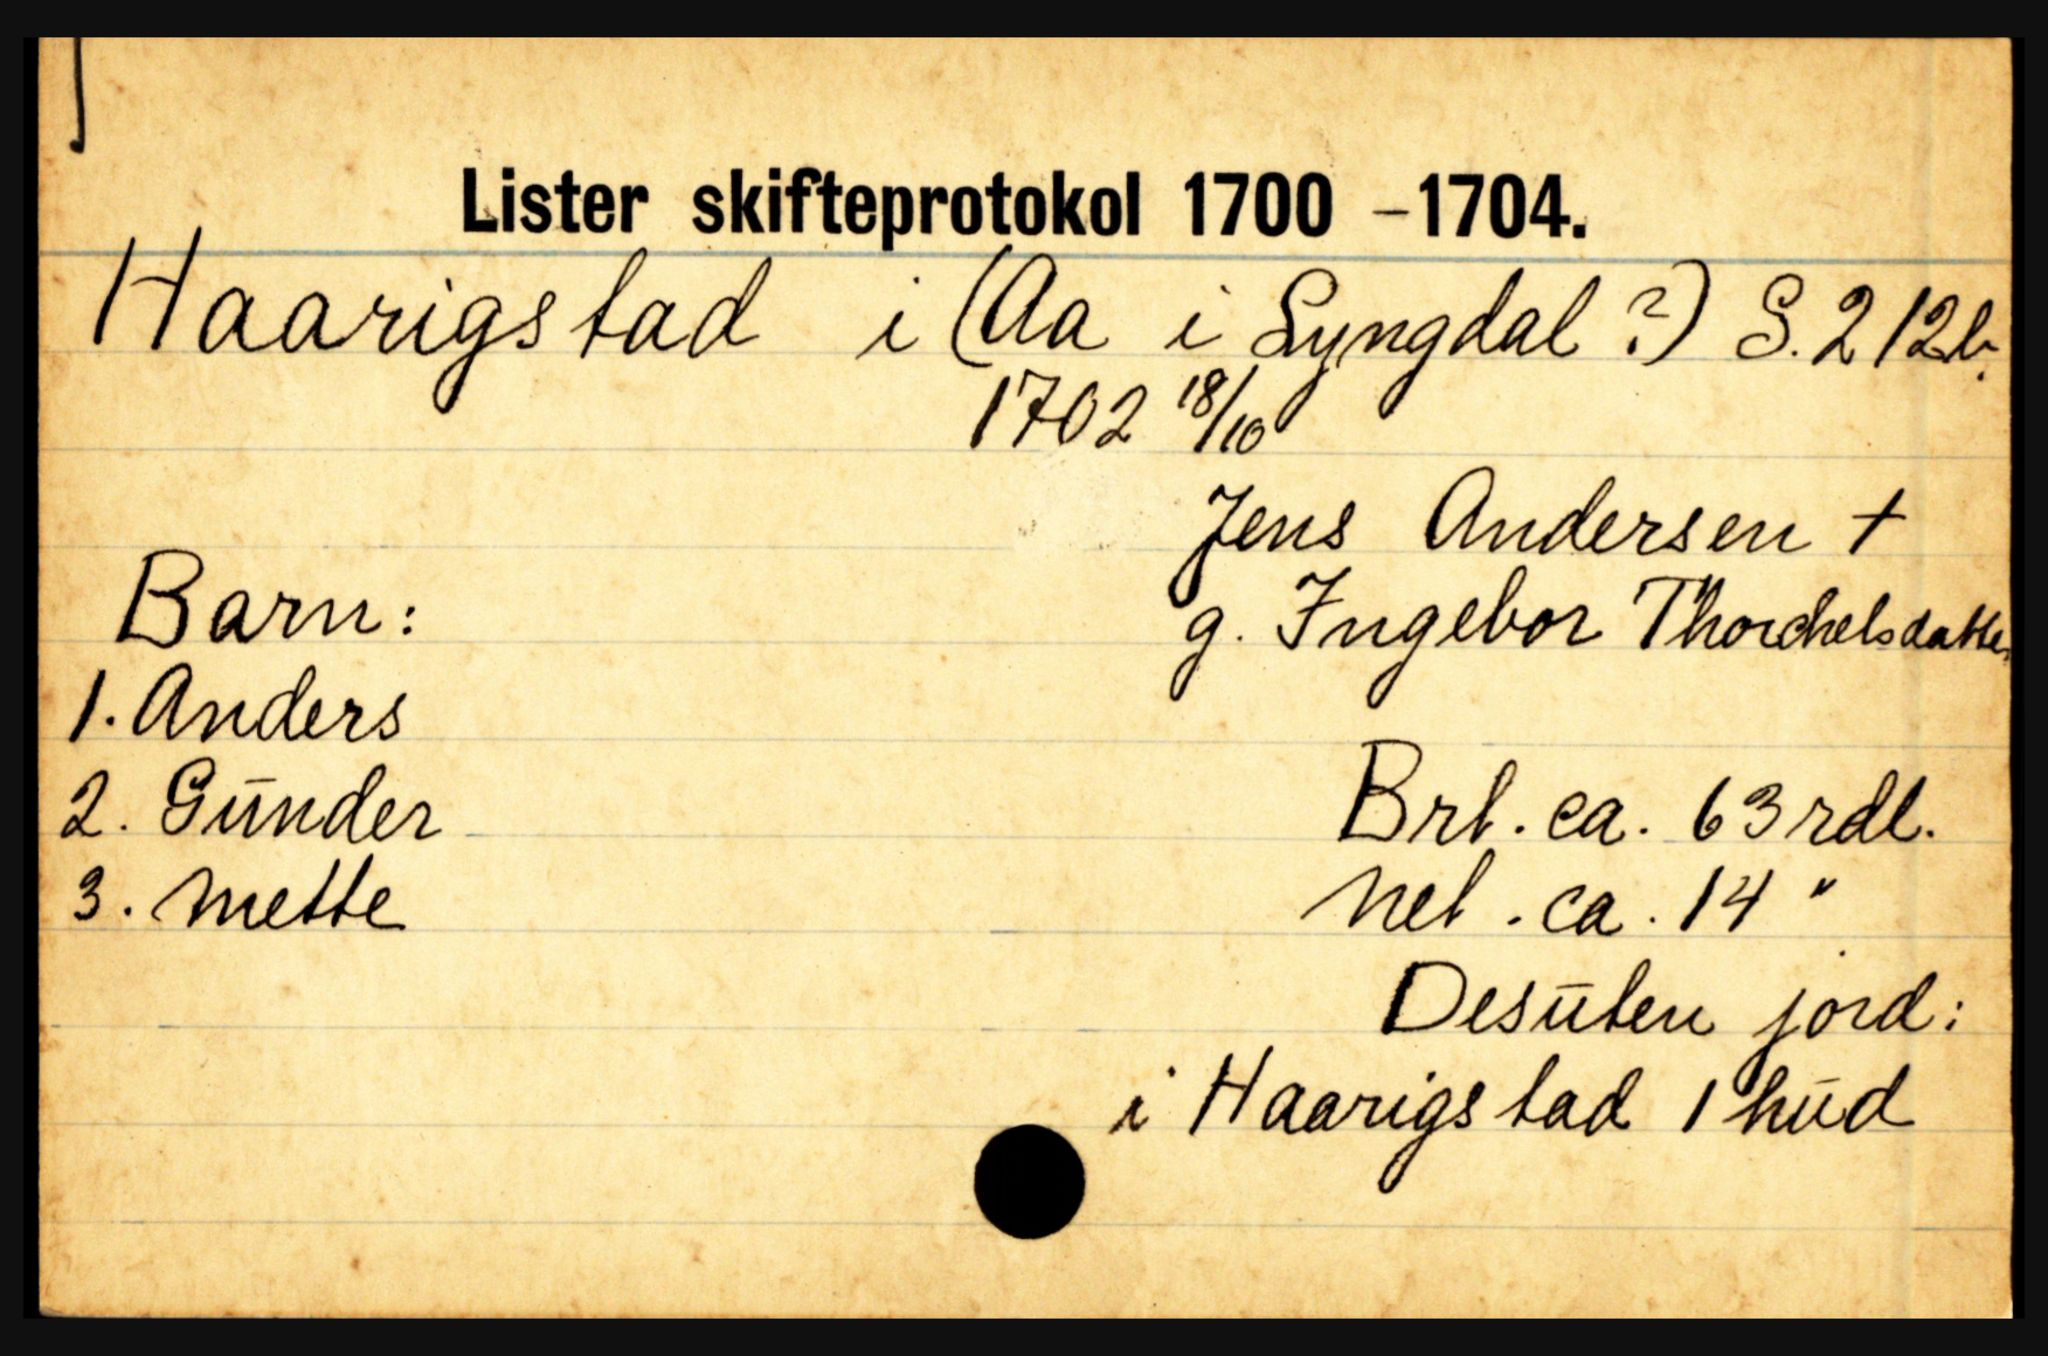 Lister skifteprotokol 1700 -1704.
Haarigstad i (Aa i Lyngdal ?) S. 212b.
1702 18/10
Jens Andersen +
g. Ingebor Thorchelsdatter
Barn:
1. Anders
2. Gunder
3. Mette
Brt. ca. 63 rdl.
Net. ca. 14 "
Desuten jord:
i Haarigstad 1 hud